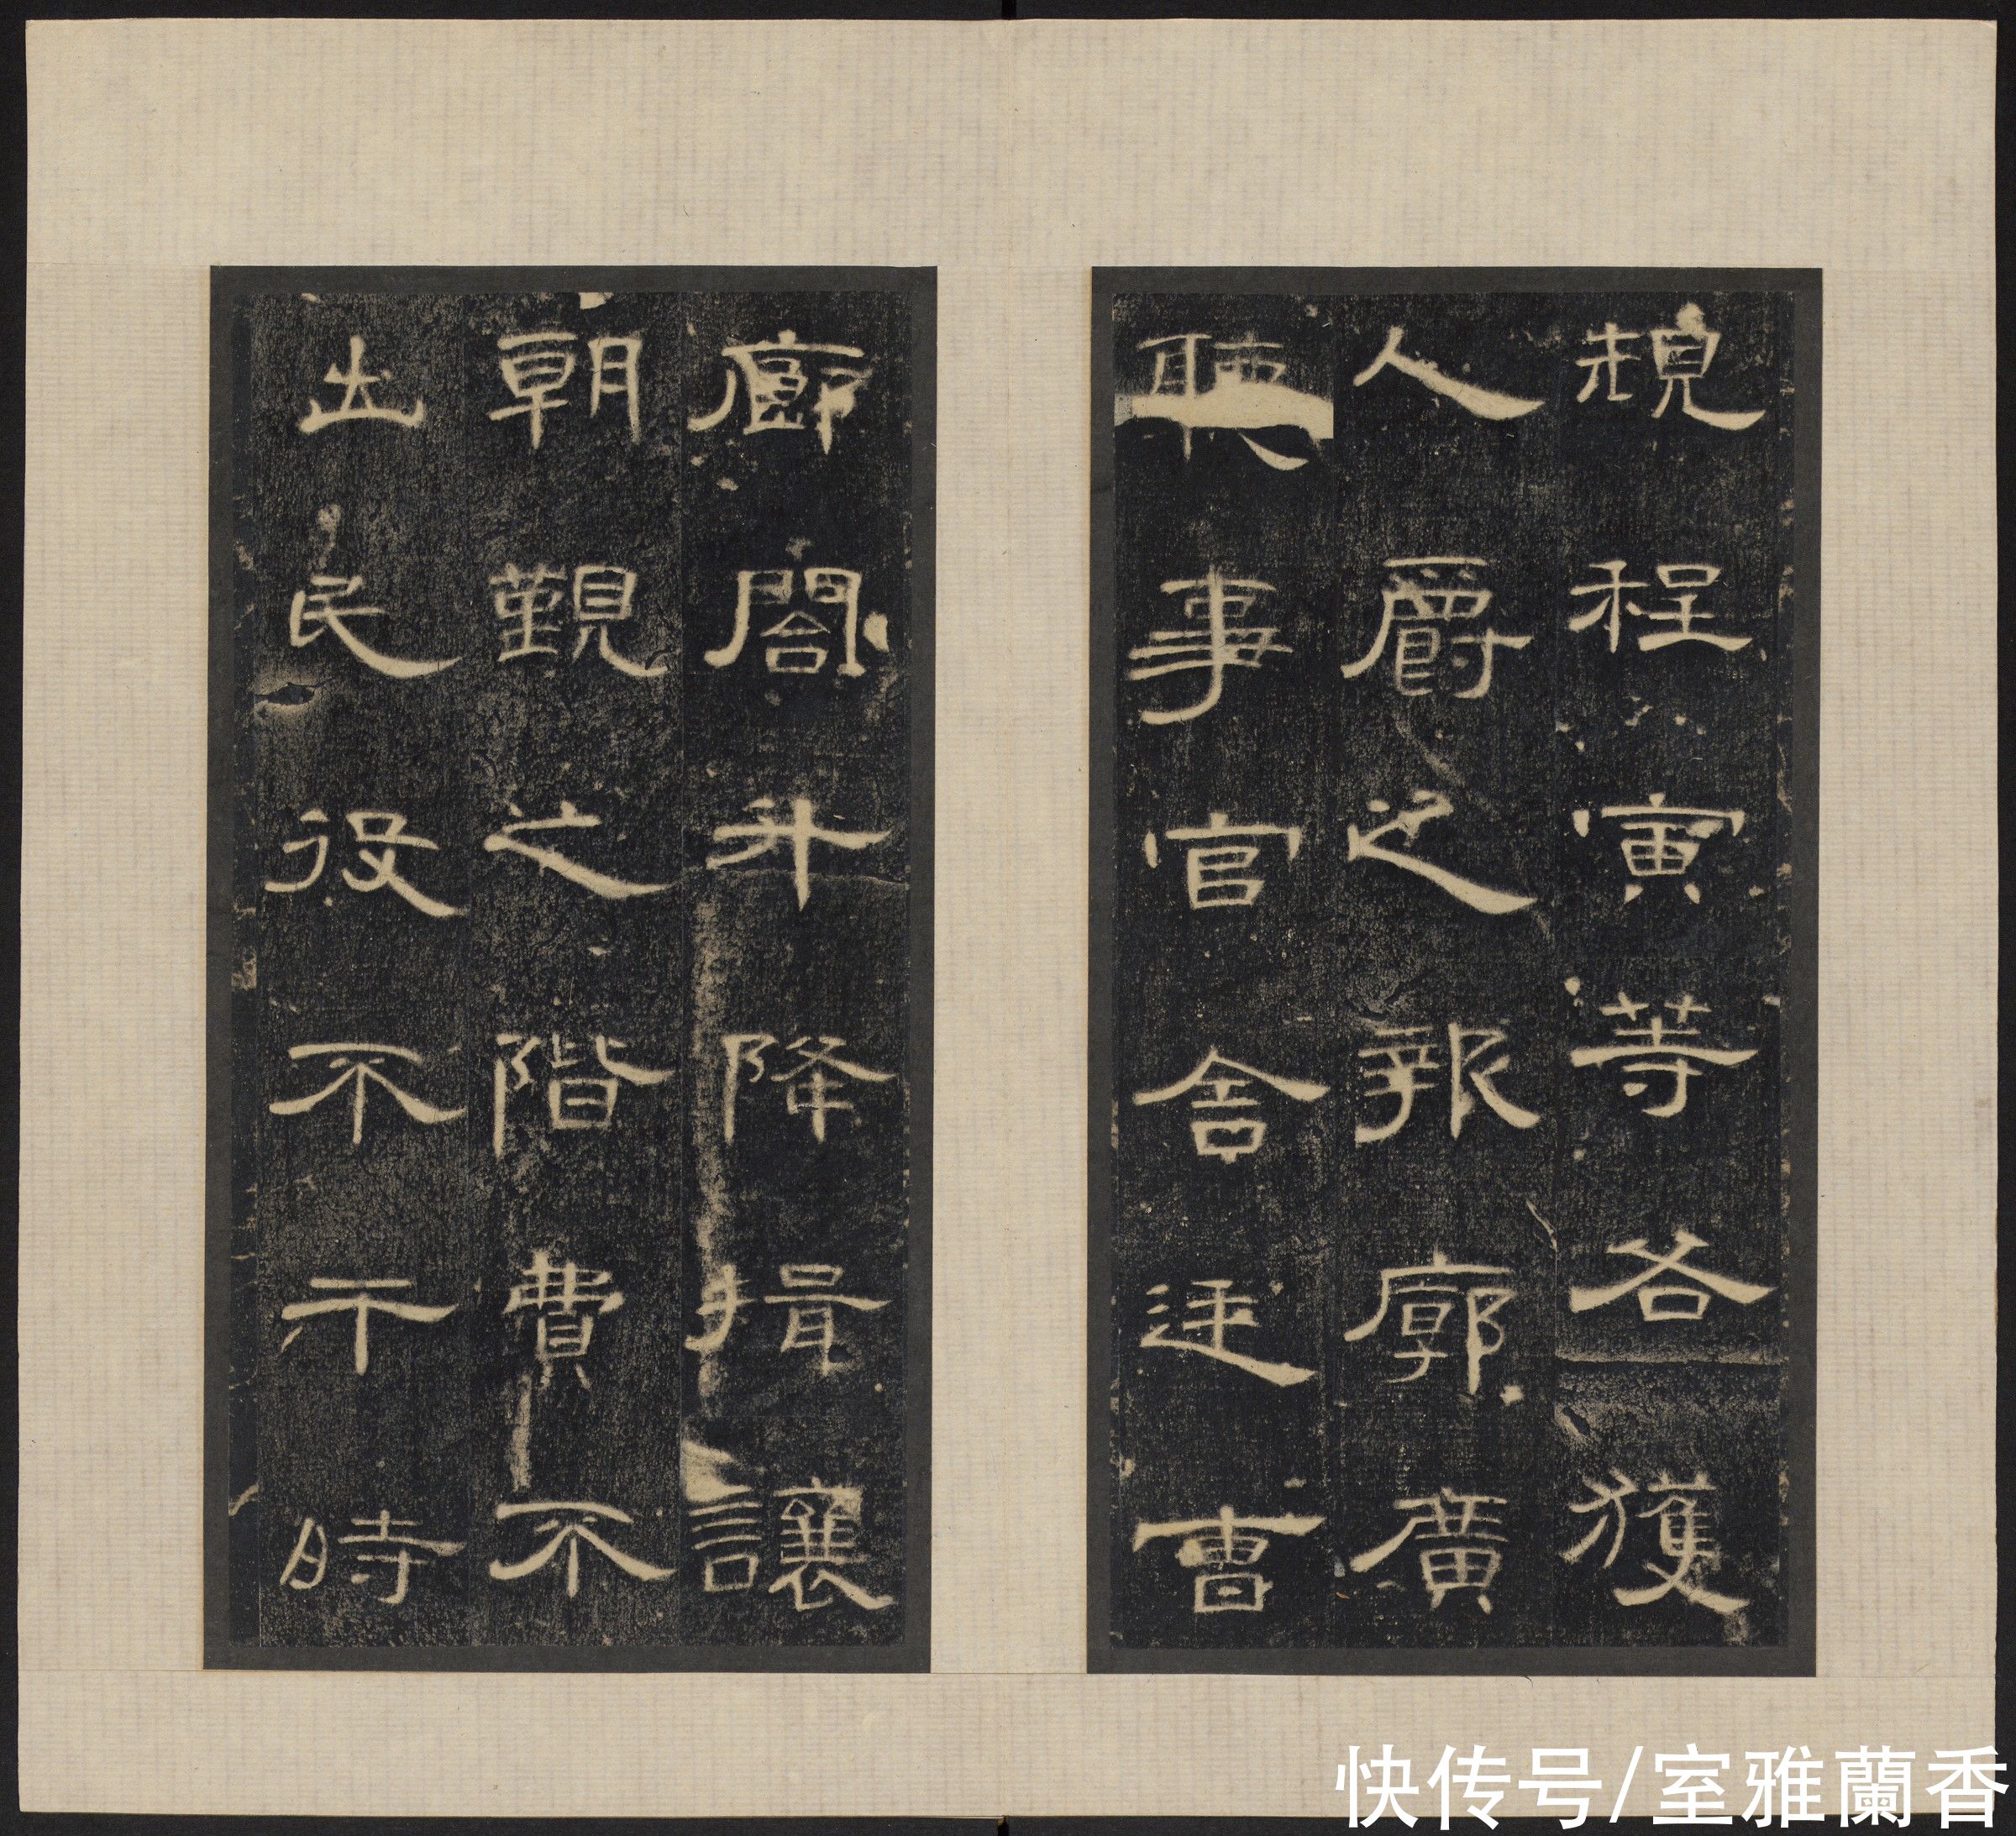 規程寅等各獲
人爵之報廓廣
聽事官舍廷曹
廊閤升降揖讓
朝覲之階費不
出民役不干時
快传号/室雅蘭香